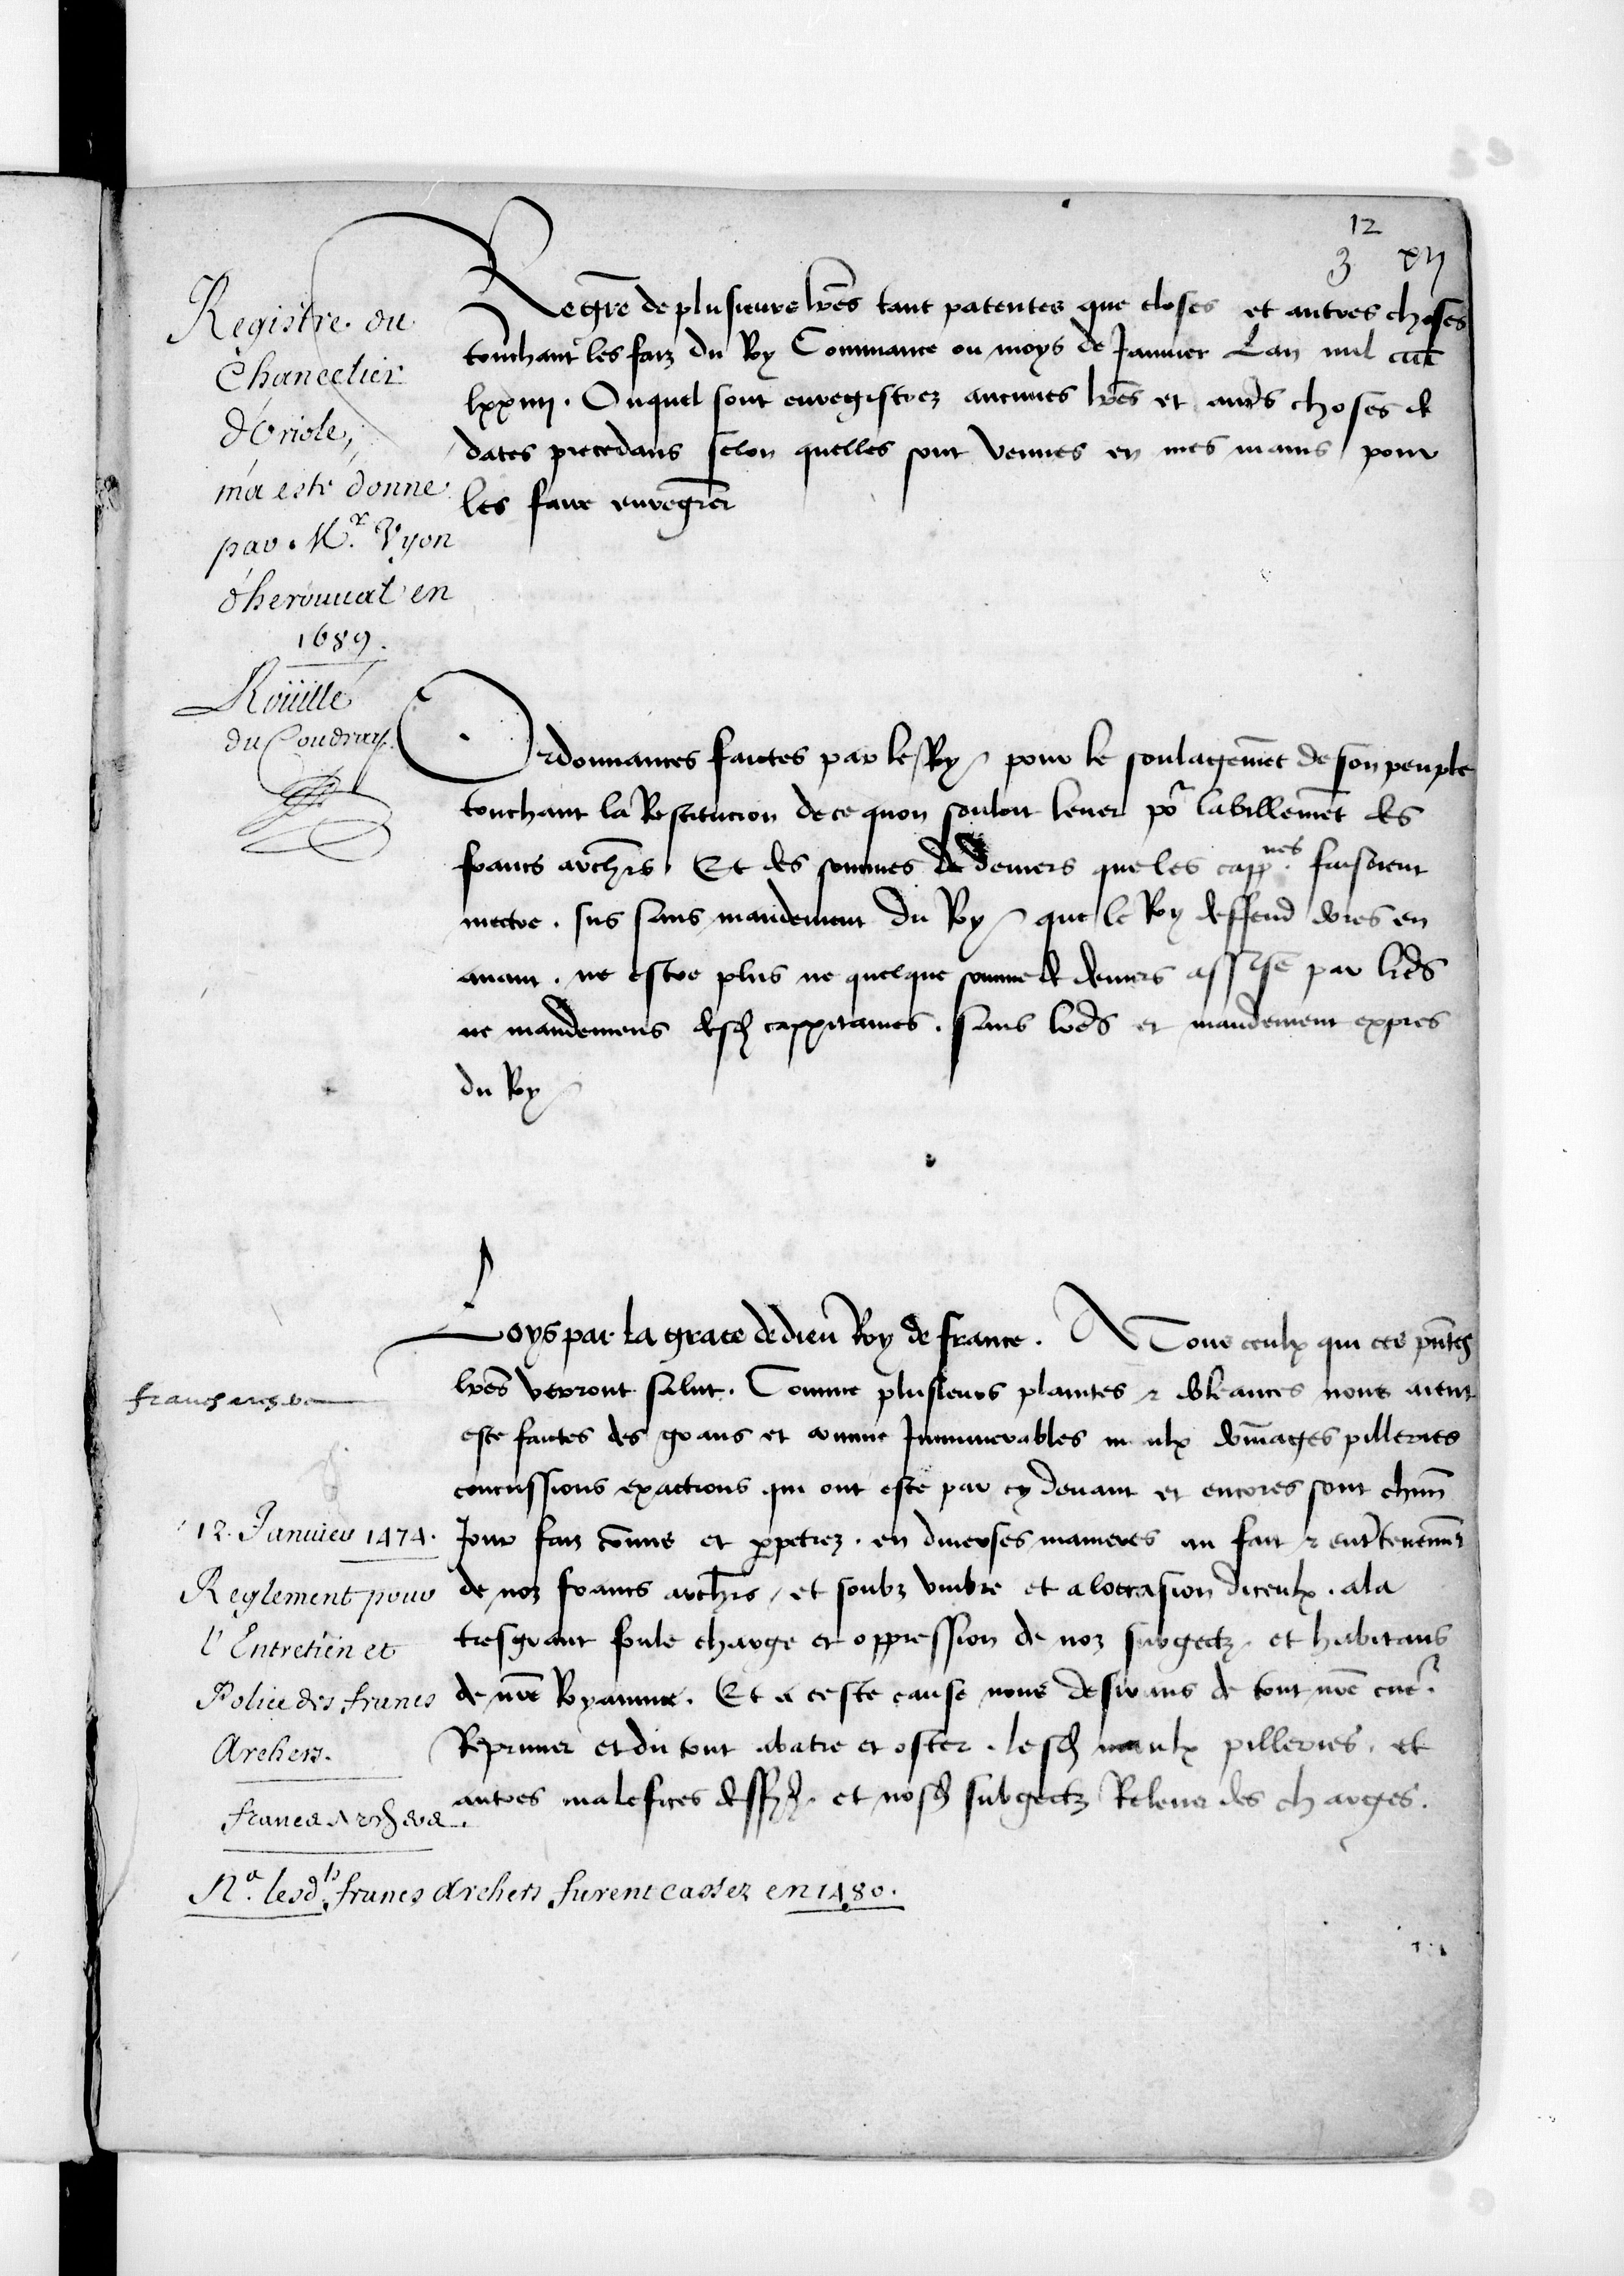 12
3 xij
Regr̃e de plusieurs lr̃es tant patentes que closes et autres choses
touchant les faiz du Roy Commance ou moys de Januier Lan mil cccc
lxxiiij. Ouquel sont enregistrez aucunes lr̃es et autr̃s choses de
dates precedans selon quelles sont venues en mes mains pour
les faire enregr̃er
Registre du
Chancelier
d'Oriole,
m'a esté donné
par Mr. Vyon
d'herouual en
1689.
Roüillé
du Coudray
Ordonnances faictes par le Roy pour le soulagemẽt de son peuple
touchant la Restitucion de ce quon souloit leuer por labillemẽt des
francs archr̃s Et des sommes de deniers que les cappnes. faisoient
mectre. sus sans mandement du Roy que le Roy deffend dores en
auant. ne estre plus ne quelque somme de deniers assise par lr̃es
ne mandemens desd cappitaines. sans lr̃es et mandement expres
du Roy
Loys par la grace de dieu Roy de france. A Tous ceulx qui ces pñtes
lr̃es verront salut. Comme plusieurs plaintes et doleances nous aient
este faictes des grans et comme Innumerables maulx dõmages pilleries
concussions exactions qui ont este par cy deuant et encores sont chũn
Jour faiz cõmis et ꝑpetrez. en diuerses manieres au fait et entretenemẽt
de noz francs archr̃s, et soubz vmbre et a loccasion diceulx. a la
tresgrant foule charge et oppression de noz subgectz, et habitans
de nr̃e Royaume. Et a ceste cause nous desirans de tout nr̃e cuer.
Reprimer et du tout abatre et oster. lesd maulx pilleries. et
autres malefices dessd. et nosd subgectz Releuer des charges.
francs archers
12. Januier 1474.
Reglement pour
l'Entretien et
Police des francs
Archers.
francs Archers
Na. lesd.ts francs Archers furent cassez en 1480.